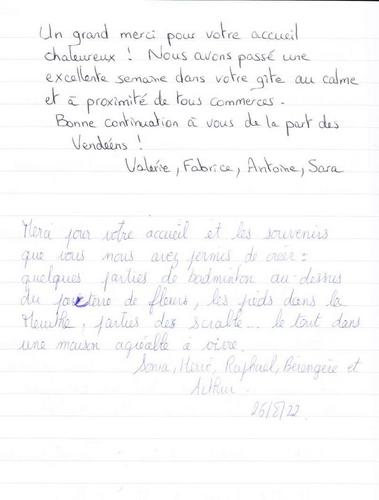 Un grand merci pour votre accueil
chaleureux ! Nous avons passé une
excellente semaine dans votre gîte au calme
et à proximité de tous commerces.
Bonne continuation à vous de la part des
Vendéens !
Valérie, Fabrice, Antoine, Sara
Merci pour votre accueil et les souvenirs
que vous nous avez permis de créer :
quelques parties de badminton au-dessus
du parterre de fleurs, les pieds dans la
Meurthe, parties de scrabble... le tout dans
une maison agréable à vivre.
Sonia, Hervé, Raphaël, Bérengère et
Arthur.
26/8/22